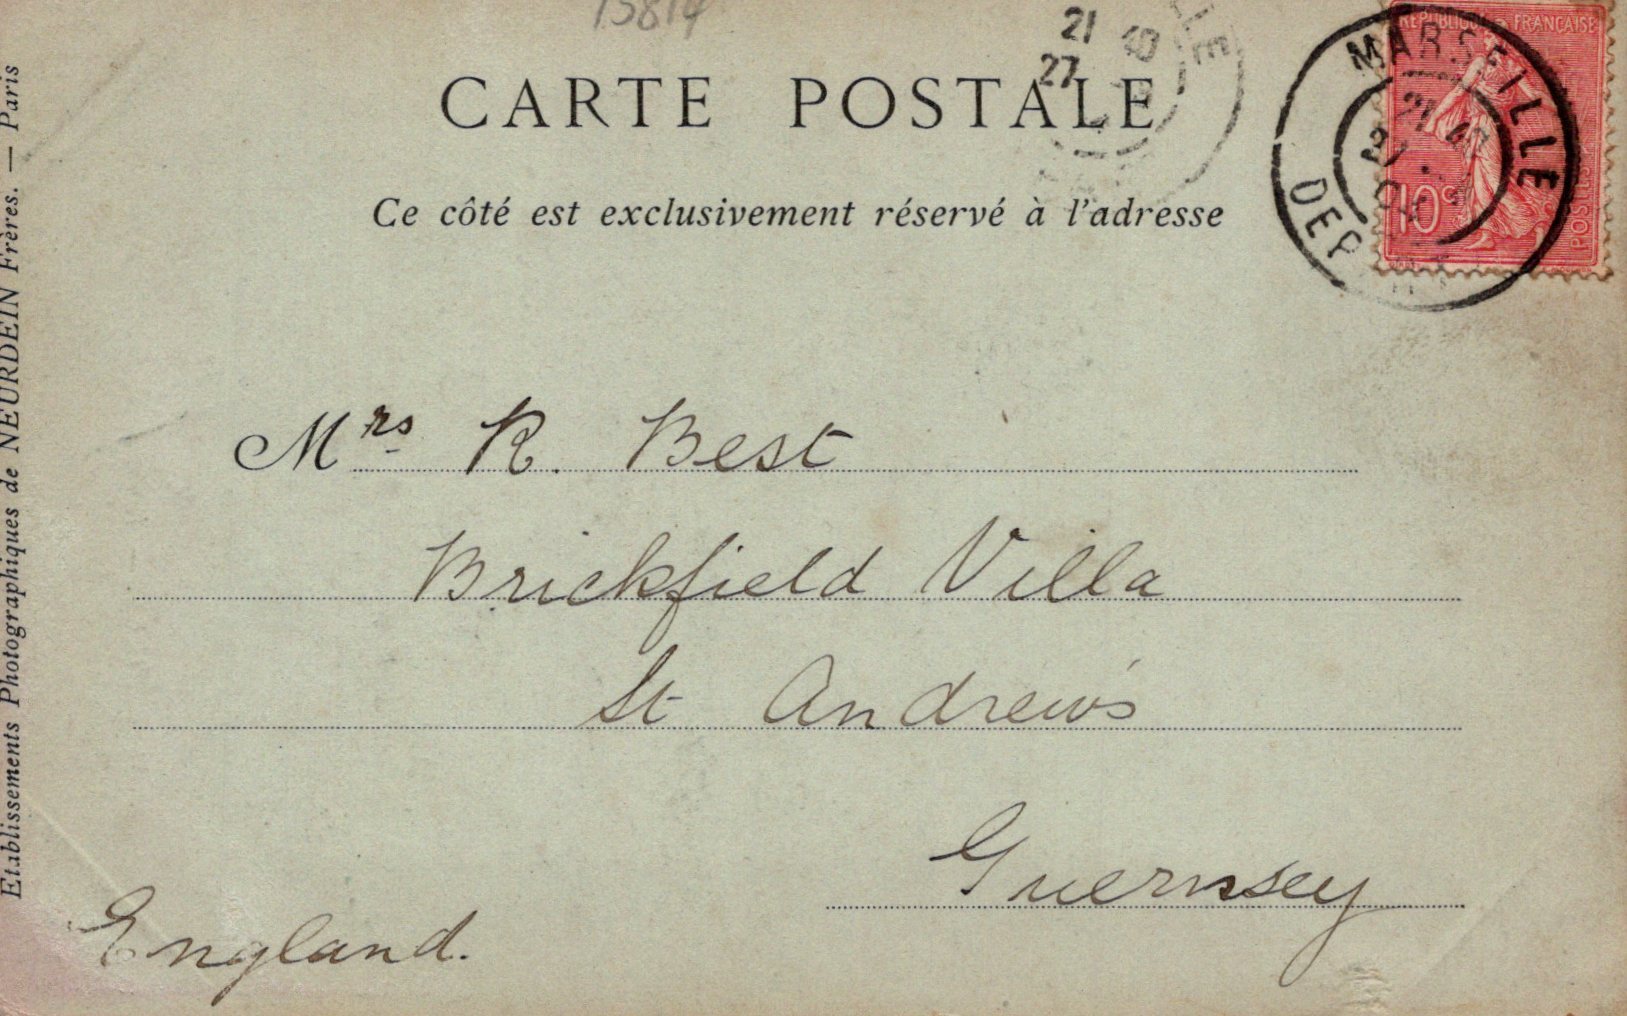 15814
CARTE POSTALE
Ce côté est exclusivement réservé à l'adresse
RÉPUBLIQUE FRANÇAISE
10c
POSTES
MARSEILLE
21 40
27
DEPART
21 40
27
LLE
Mrs R. Best
Brickfield Villa
St Andrew's
Guernsey
England.
Etablissements Photographiques de NEURDEIN Frères. — Paris